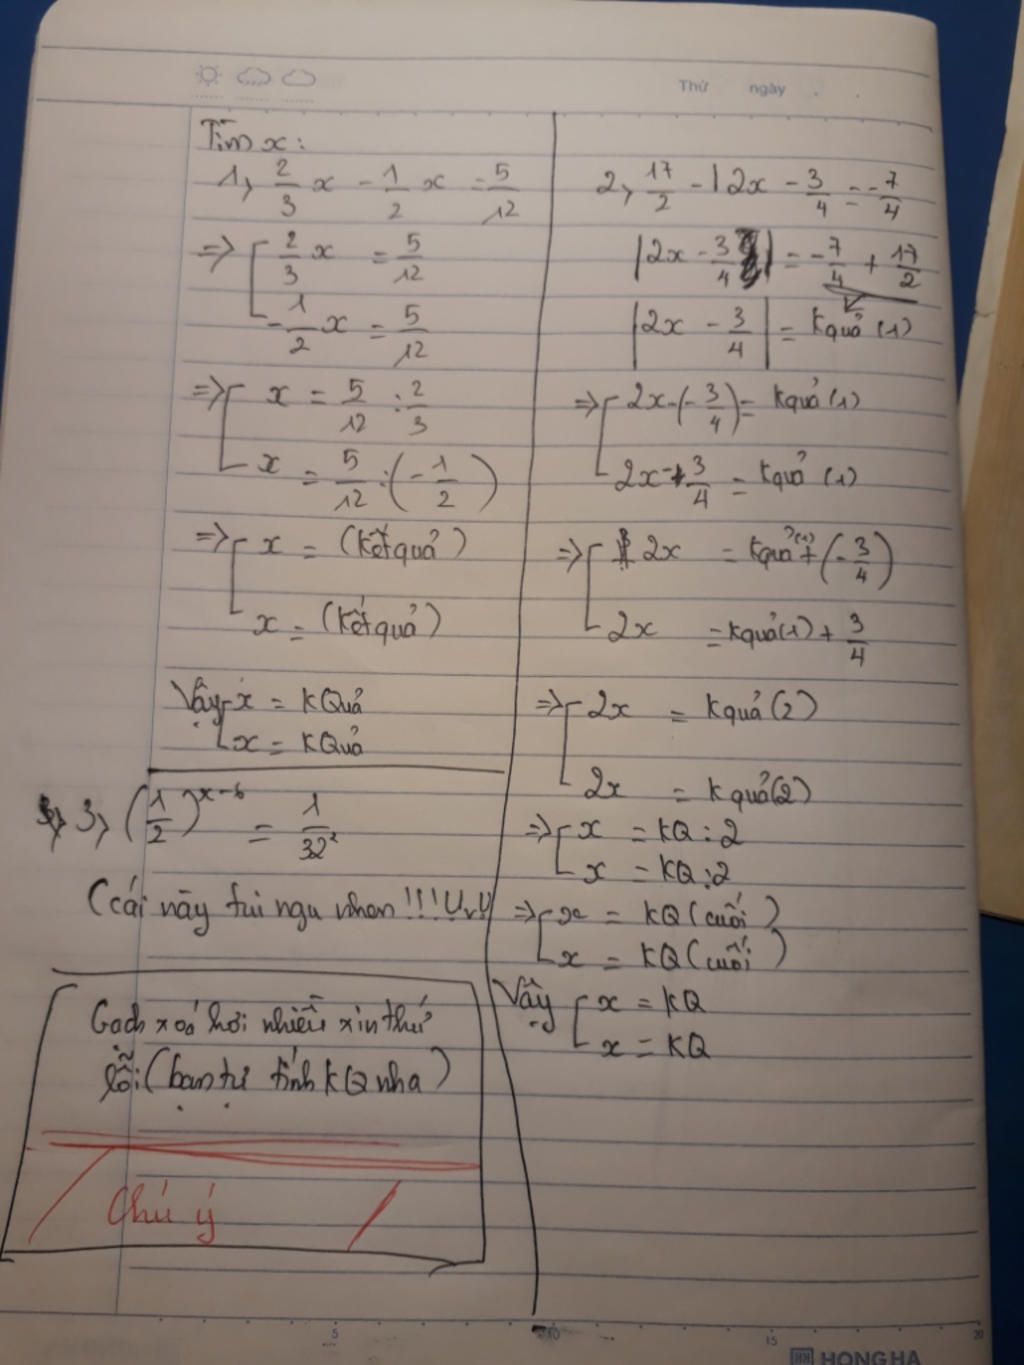 Thứ ngày
Tìm x:
1, 2/3 x - 1/2 x = 5/12
=> [ 2/3 x = 5/12
- 1/2 x = 5/12
=> [ x = 5/12 : 2/3
x = 5/12 : (- 1/2)
=> [ x = (Kết quả)
x = (Kết quả)
Vậy [ x = KQuả
x = KQuả
3, (1/2)^(x-6) = 1/32²
(cái này tui ngu nhen !!! UvU
Gạch xoá hơi nhiều xin thứ
lỗi (bạn tự tính KQ nha)
Chú ý
2, 17/2 - | 2x - 3/4 = - 7/4
| 2x - 3/4 | = - 7/4 + 17/2
| 2x - 3/4 | = Kquả (1)
=> [ 2x - (- 3/4) = Kquả (1)
2x - 3/4 = Kquả (1)
=> [ 2x = Kquả (1) + (- 3/4)
2x = Kquả (1) + 3/4
=> [ 2x = Kquả (2)
2x = Kquả (2)
=> [ x = KQ : 2
x = KQ : 2
=> [ x = KQ (cuối)
x = KQ (cuối)
Vậy [ x = KQ
x = KQ
5 10 15 20
HONG HA